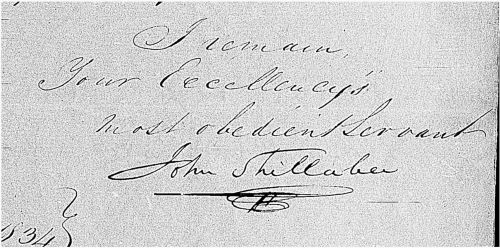 I remain,
Your Excellency's
most obedient Servant
John Shillaber
1834